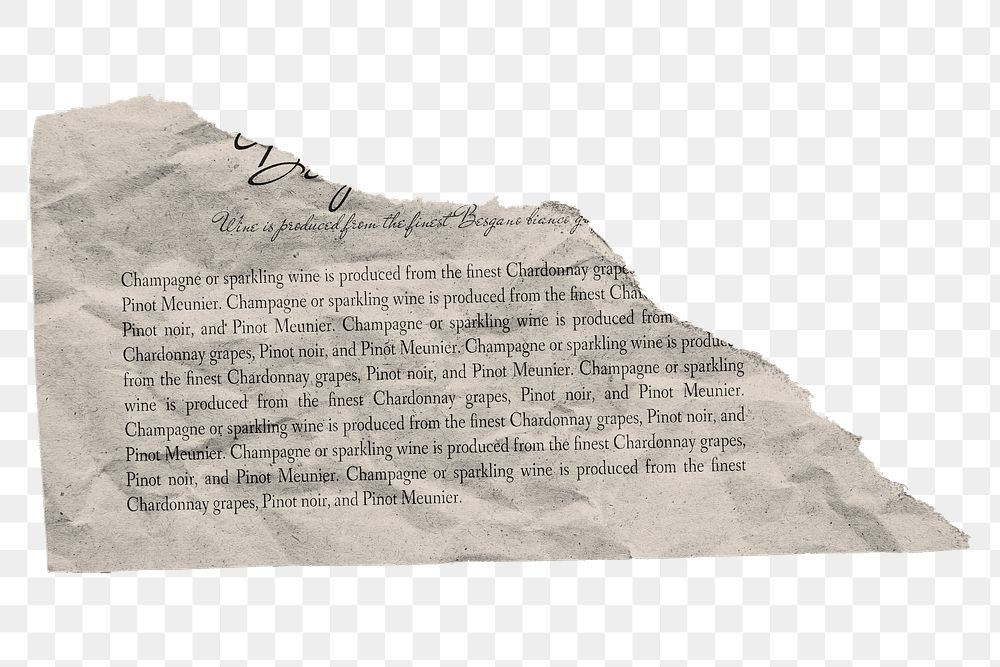 Wine is produced from the finest Besgano bianco
Champagne or sparkling wine is produced from the finest Chardonnay grape
Pinot Meunier. Champagne or sparkling wine is produced from the finest
Pinot noir, and Pinot Meunier. Champagne or sparkling wine is produced from
Chardonnay grapes, Pinot noir, and Pinot Meunier. Champagne or sparkling wine is
from the finest Chardonnay grapes, Pinot noir, and Pinot Meunier. Champagne or sparkling
wine is produced from the finest Chardonnay grapes, Pinot noir, and Pinot Meunier.
Champagne or sparkling wine is produced from the finest Chardonnay grapes, Pinot noir, and
Pinot Meunier. Champagne or sparkling wine is produced from the finest Chardonnay grapes,
Pinot noir, and Pinot Meunier. Champagne or sparkling wine is produced from the finest
Chardonnay grapes, Pinot noir, and Pinot Meunier.